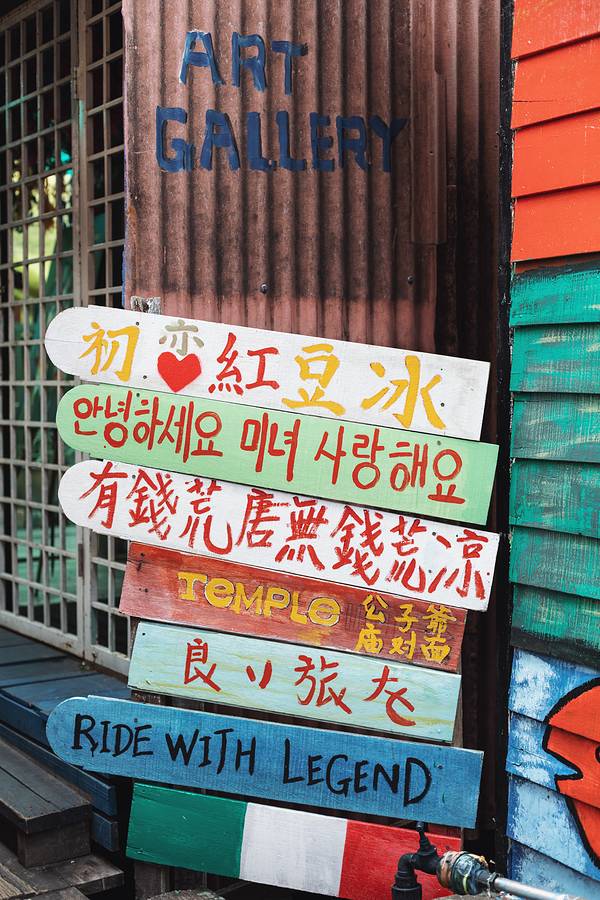 ART
GALLERY
初恋紅豆冰
안녕하세요 미녀 사랑해요
有錢荒唐無錢荒涼
TEMPLE 公子爺
庙对面
良い旅を
RIDE WITH LEGEND